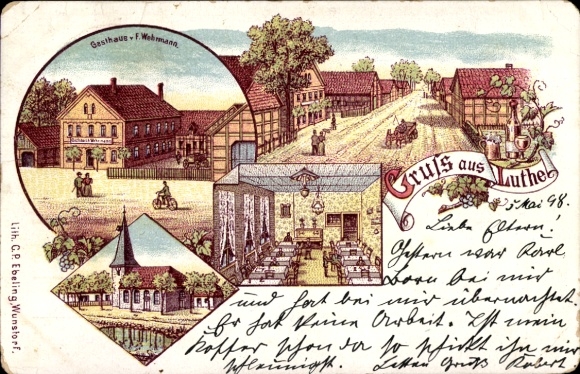 Gasthaus v. F. Wehrmann.
Gasthaus v. Wehrmann
Gruss aus Luthe
5 Mai 98.
Liebe Eltern!
Gestern war Karl
Born bei mir
und hat bei mir übernachtet.
Er hat keine Arbeit. Ist mein
Koffer schon da so schickt ihn mir
schleunigst. Besten Gruß Robert
Lith. C. P. Ebeling, Wunstorf.